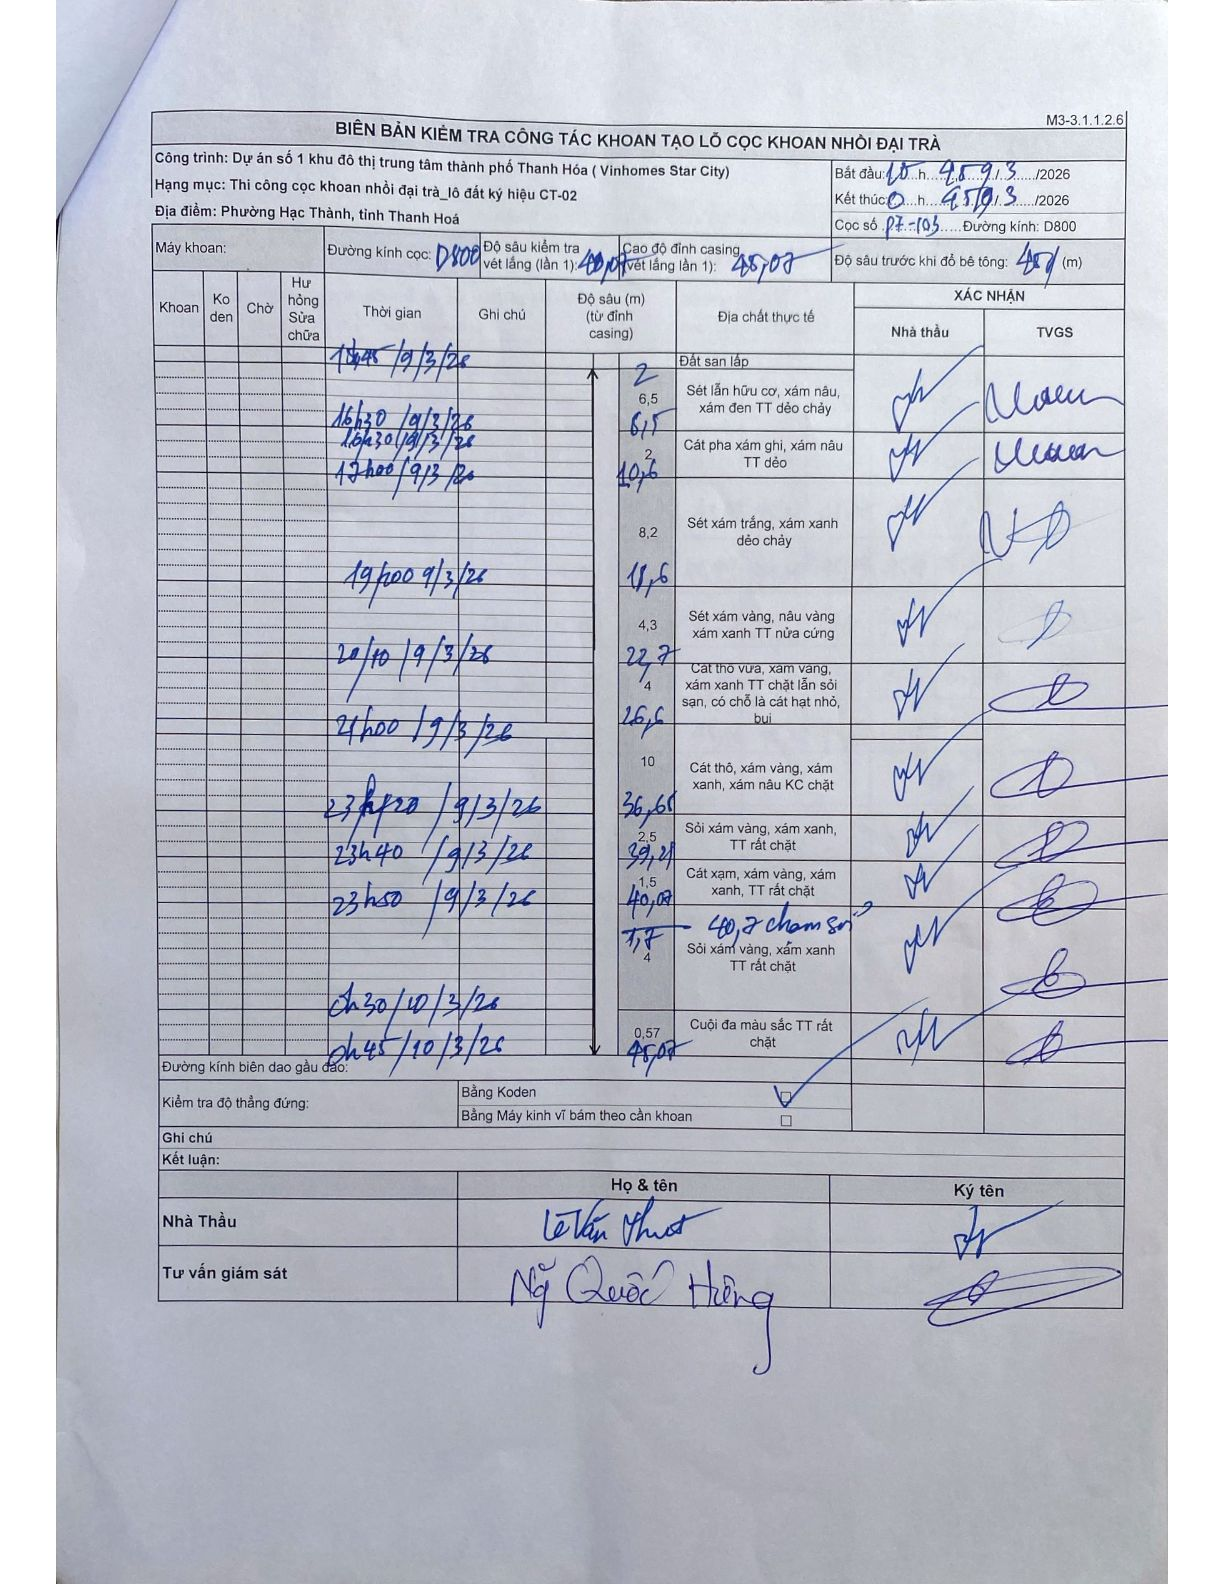 M3-3.1.1.2.6
BIÊN BẢN KIỂM TRA CÔNG TÁC KHOAN TẠO LỖ CỌC KHOAN NHỒI ĐẠI TRÀ
Công trình: Dự án số 1 khu đô thị trung tâm thành phố Thanh Hóa ( Vinhomes Star City)
Hạng mục: Thi công cọc khoan nhồi đại trà_lô đất ký hiệu CT-02
Địa điểm: Phường Hạc Thành, tỉnh Thanh Hoá
Bắt đầu: 15 h 45 9/3/2026
Kết thúc: 0 h 45 /3/2026
Cọc số P7-103 Đường kính: D800
Máy khoan:
Đường kính cọc: D800
Độ sâu kiểm tra vét lắng (lần 1): 40,07
Cao độ đỉnh casing vét lắng lần 1): 45,07
Độ sâu trước khi đổ bê tông: 45,1 (m)
Khoan
Ko đen
Chờ
Hư hỏng Sửa chữa
Thời gian
Ghi chú
Độ sâu (m) (từ đỉnh casing)
Địa chất thực tế
XÁC NHẬN
Nhà thầu
TVGS
15h45 /9/3/26
Đất san lấp
2
6,5
Sét lẫn hữu cơ, xám nâu, xám đen TT dẻo chảy
16h30 /9/3/26
6,5
16h30 /9/3/26
2
Cát pha xám ghi, xám nâu TT dẻo
17h00 /9/3/26
10,6
8,2
Sét xám trắng, xám xanh dẻo chảy
19h00 9/3/26
18,6
4,3
Sét xám vàng, nâu vàng xám xanh TT nửa cứng
20h10 /9/3/26
22,7
4
Cát thô vừa, xám vàng, xám xanh TT chặt lẫn sỏi sạn, có chỗ là cát hạt nhỏ, bụi
21h00 /9/3/26
26,6
10
Cát thô, xám vàng, xám xanh, xám nâu KC chặt
23h20 /9/3/26
36,65
2,5
Sỏi xám vàng, xám xanh, TT rất chặt
23h40 /9/3/26
39,21
1,5
Cát xạm, xám vàng, xám xanh, TT rất chặt
23h50 /9/3/26
40,07
40,7 chạm sỏi
1,7
4
Sỏi xám vàng, xám xanh TT rất chặt
0h30/10/3/26
0,57
Cuội đa màu sắc TT rất chặt
0h45/10/3/26
45,07
Đường kính biên dao gầu đào:
Kiểm tra độ thẳng đứng:
Bằng Koden
Bằng Máy kinh vĩ bám theo cần khoan
Ghi chú
Kết luận:
Họ & tên
Ký tên
Nhà Thầu
Lê Văn
Tư vấn giám sát
Ng Quốc Hưng